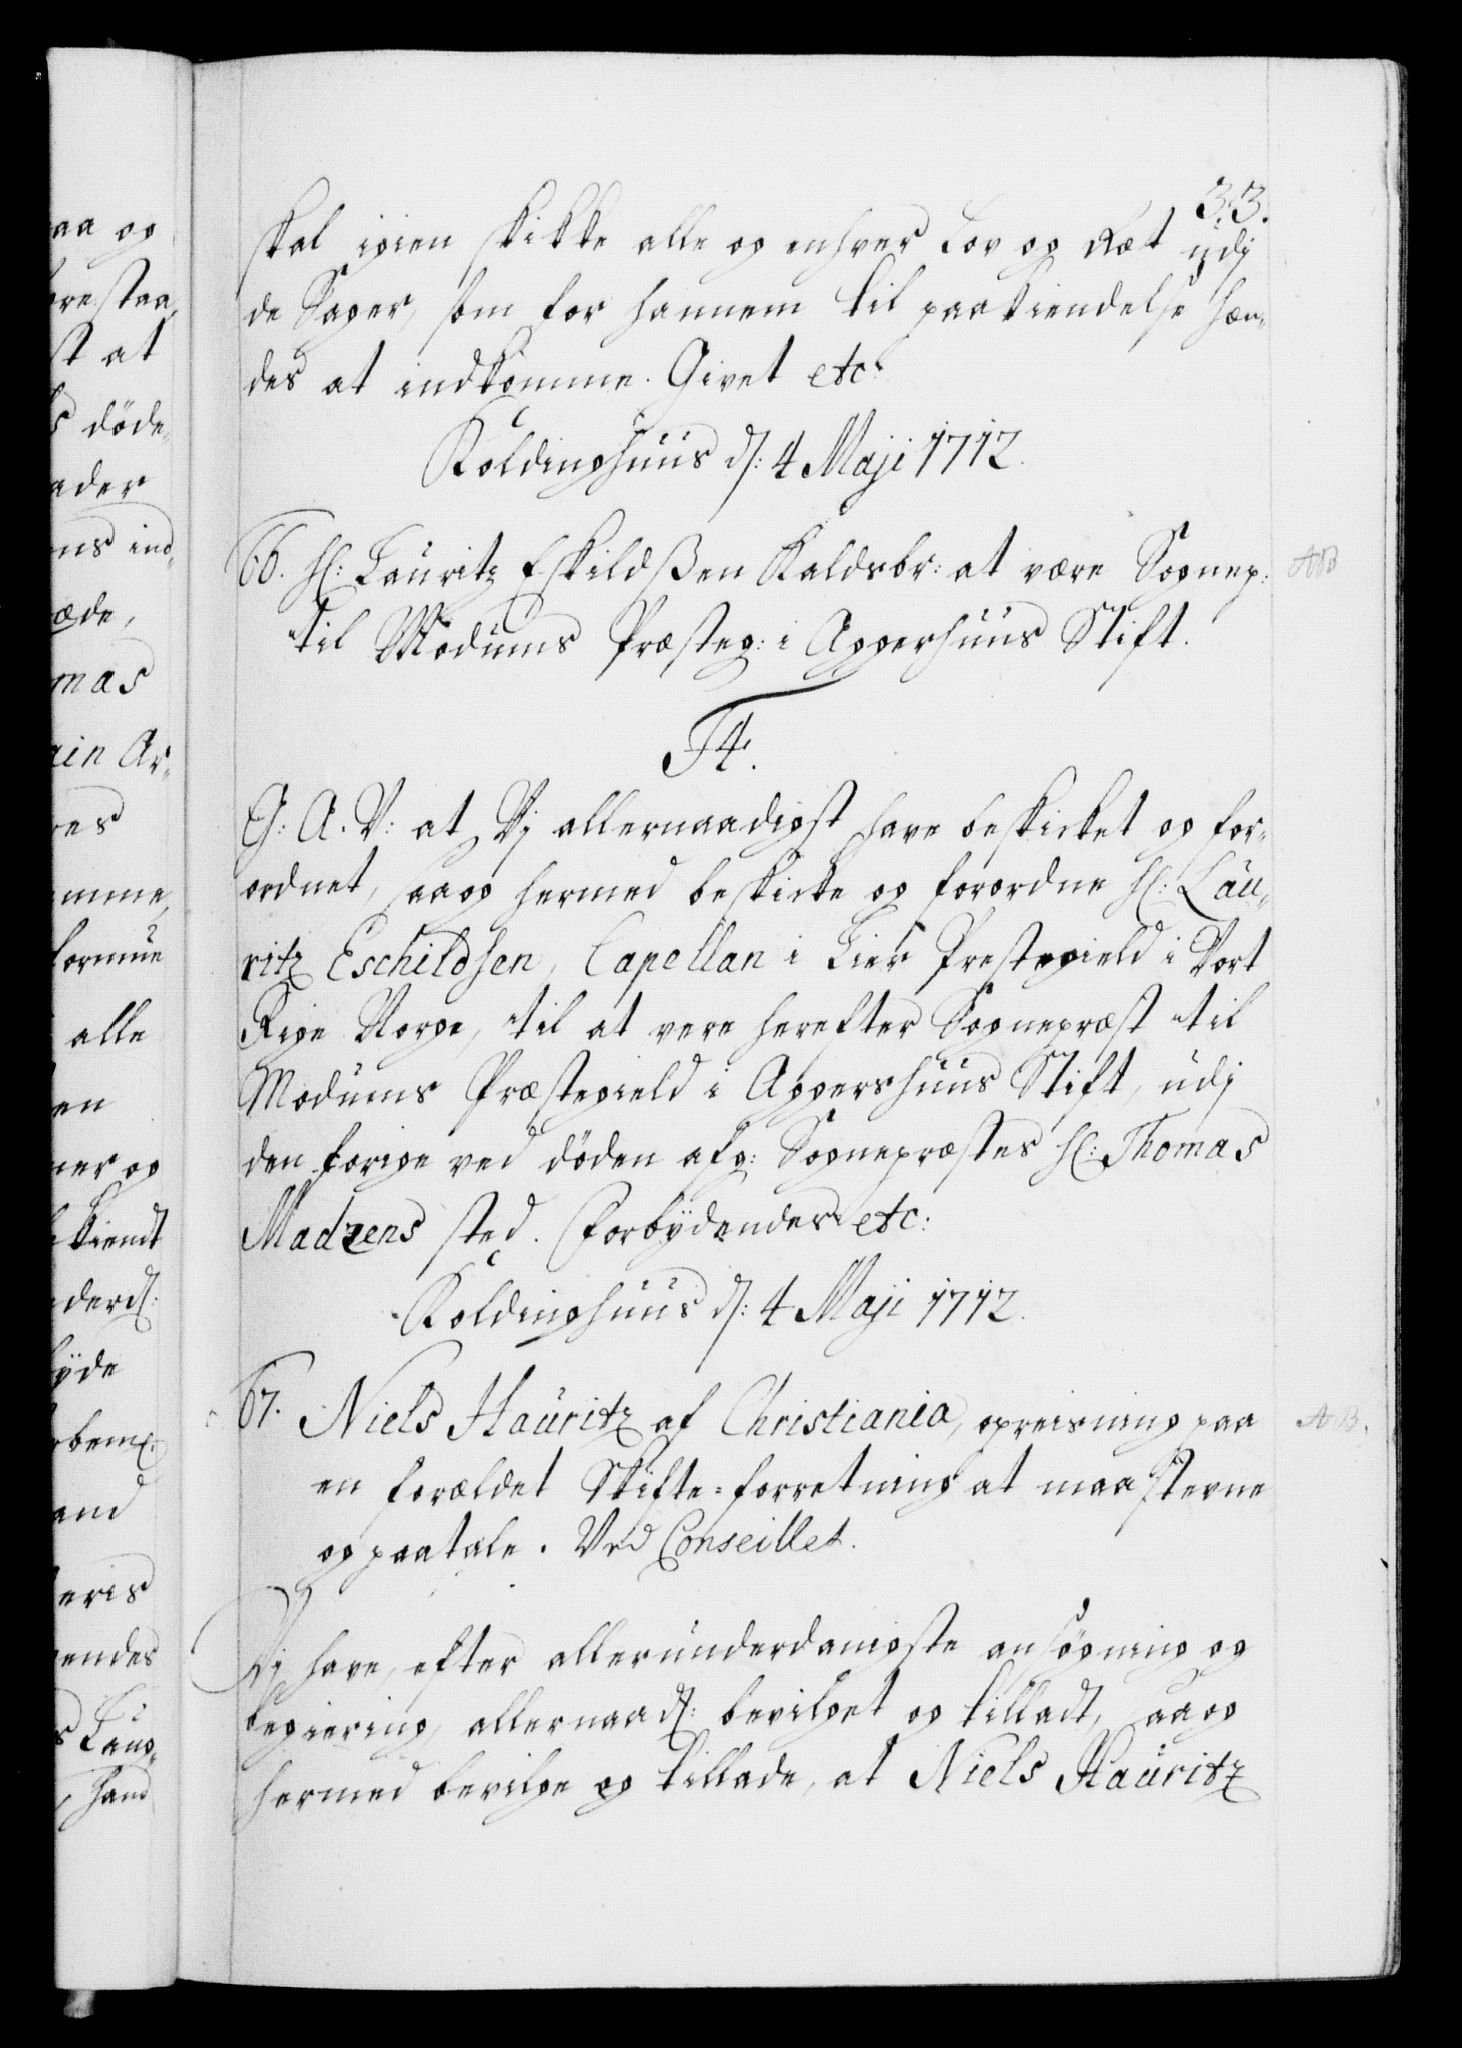 33.
skal igien skikke alle og enhver Lov og Ræt udj
de Sager, som for hannem til paakiendelse hæn-
des at indkomme. Givet etc.
Koldinghuus d: 4 Maji 1712.
66. Hr: Lauritz Eskildßen Kaldsbr: at være Sognep:
til Modums Præsteg: i Aggerhuus Stift.
AB
F4.
G: A. V: at Vj allernaadigst have beskicket og for-
ordnet, saa og hermed beskicke og forordne Hr: Lau-
ritz Eschildsen, Capellan i Lier Prestegield i Vort
Rige Norge, til at vere herefter Sognepræst til
Modums Præstegield i Aggershuus Stift, udj
den forige ved döden afg: Sognepræstes Hr: Thomas
Madzens sted. Forbydendes etc:
Koldinghuus d: 4 Maji 1712.
67. Niels Hauritz af Christiania, opreisning paa
en forældet Skifte-forretning at maa stevne
og paatale. Ved Conseillet.
AB.
Vj have, efter allerunderdanigste ansøgning og
begiering, allernaad: bevilget og tilladt, saa og
hermed bevilge og tillade, at Niels Hauritz
aa og
orestaa,
st at
s döde
ader
ns ind-
æde,
mas
in Ar-
res
mme,
formue
alle
en
ner og
kiendt
derd:
yde
bem:
and
eris
endes
s Laug-
hand